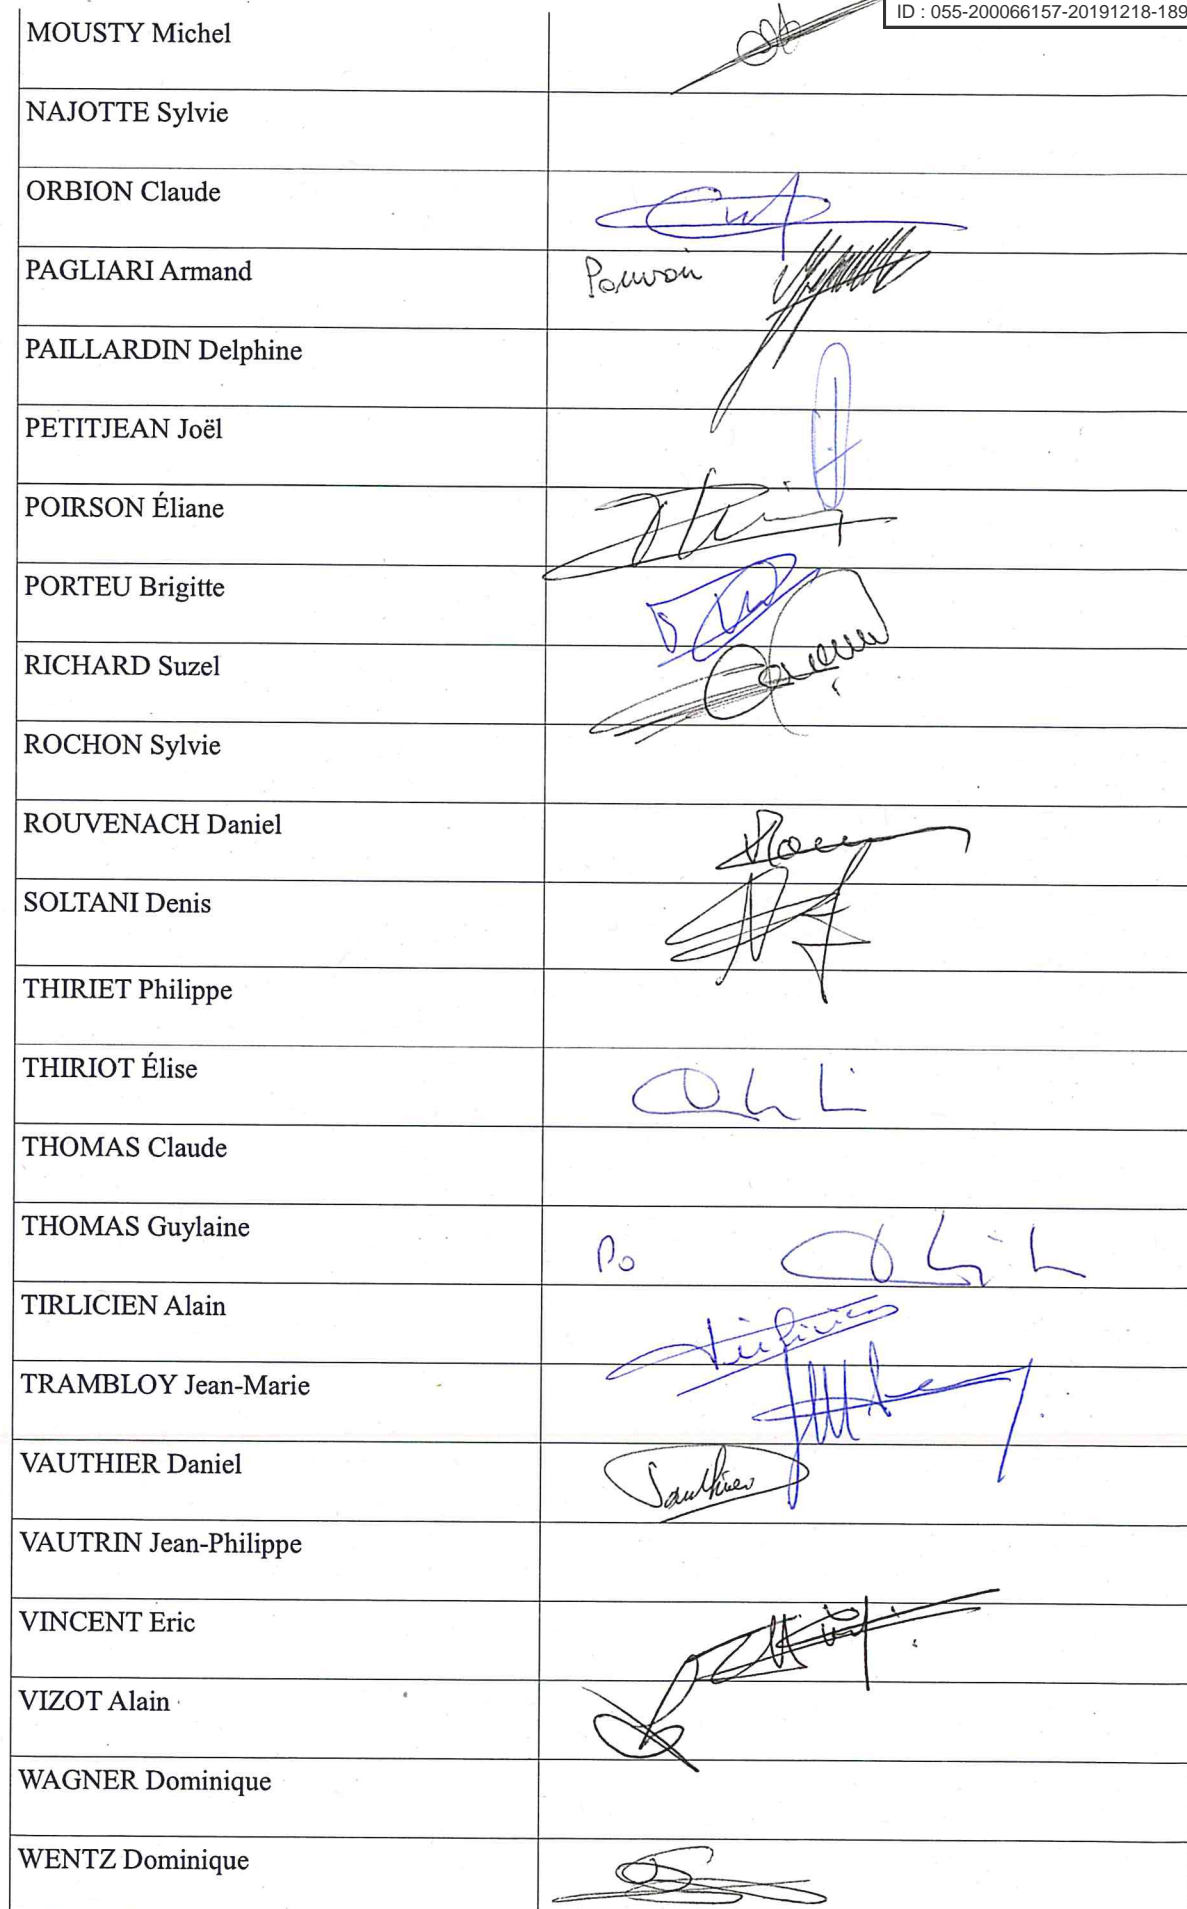 ID : 055-200066157-20191218-189
MOUSTY Michel
NAJOTTE Sylvie
ORBION Claude
PAGLIARI Armand Pouvoir
PAILLARDIN Delphine
PETITJEAN Joël
POIRSON Éliane
PORTEU Brigitte
RICHARD Suzel
ROCHON Sylvie
ROUVENACH Daniel
SOLTANI Denis
THIRIET Philippe
THIRIOT Élise
THOMAS Claude
THOMAS Guylaine Po
TIRLICIEN Alain
TRAMBLOY Jean-Marie
VAUTHIER Daniel
VAUTRIN Jean-Philippe
VINCENT Eric
VIZOT Alain
WAGNER Dominique
WENTZ Dominique